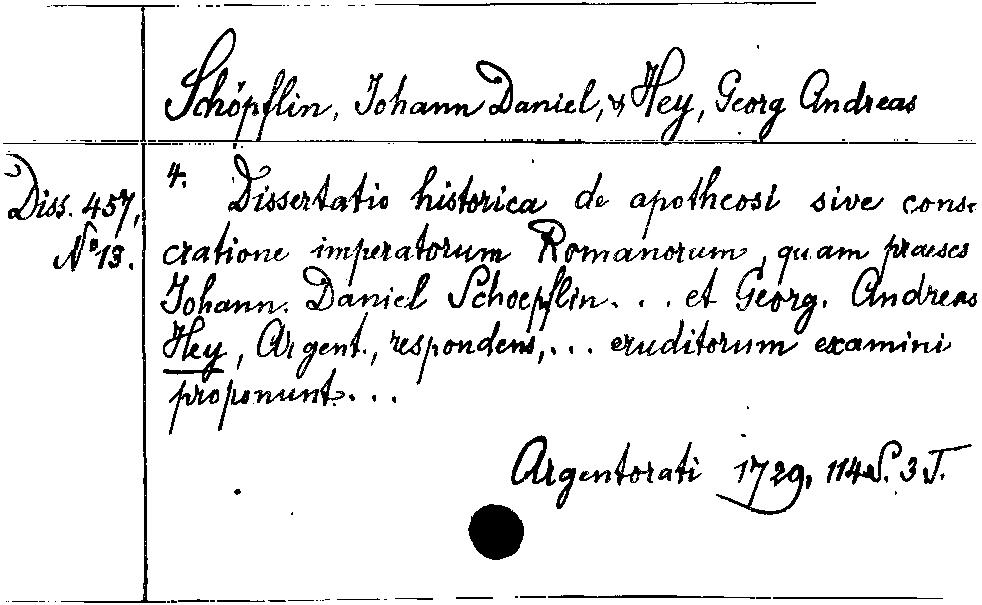 Schöpflin, Johann Daniel, & Hey, Georg Andreas
Diss. 457,
No 13.
4. Dissertatio historica de apotheosi sive conse-
cratione imperatorum Romanorum, quam praeses
Johann. Daniel Schoepflin... et Georg. Andreas
Hey, Argent., respondens,... eruditorum examini
proponunt...
Argentorati 1729, 114 S. 3 T.